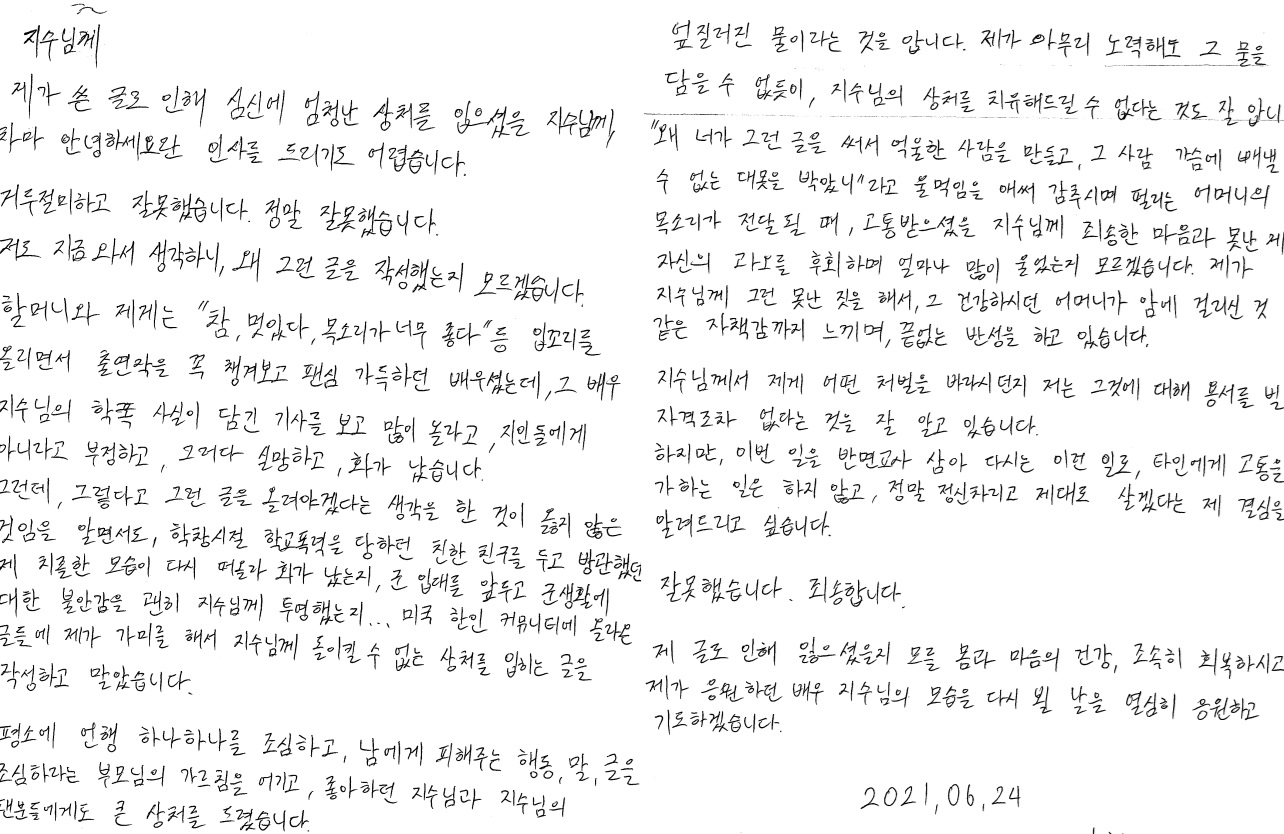 지수님께
제가 쓴 글로 인해 심신에 엄청난 상처를 입으셨을 지수님께,
차마 안녕하세요란 인사를 드리기도 어렵습니다.
거두절미하고 잘못했습니다. 정말 잘못했습니다.
저도 지금 와서 생각하니, 왜 그런 글을 작성했는지 모르겠습니다.
할머니와 제게는 "참, 멋있다, 목소리가 너무 좋다" 등 입꼬리를
올리면서 출연작을 꼭 챙겨보고 팬심 가득하던 배우셨는데, 그 배우
지수님의 학폭 사실이 담긴 기사를 보고 많이 놀라고, 지인들에게
아니라고 부정하고, 그러다 실망하고, 화가 났습니다.
그런데, 그렇다고 그런 글을 올려야겠다는 생각을 한 것이 옳지 않은
것임을 알면서도, 학창시절 학교폭력을 당하던 친한 친구를 두고 방관했던
제 치졸한 모습이 다시 떠올라 화가 났는지, 군 입대를 앞두고 군생활에
대한 불안감을 괜히 지수님께 투영했는지... 미국 한인 커뮤니티에 올라온
글들에 제가 가미를 해서 지수님께 돌이킬 수 없는 상처를 입히는 글을
작성하고 말았습니다.
평소에 언행 하나하나를 조심하고, 남에게 피해주는 행동, 말, 글을
조심하라는 부모님의 가르침을 어기고, 좋아하던 지수님과 지수님의
팬분들에게도 큰 상처를 드렸습니다.
엎질러진 물이라는 것을 압니다. 제가 아무리 노력해도 그 물을
담을 수 없듯이, 지수님의 상처를 치유해드릴 수 없다는 것도 잘 압니
"왜 너가 그런 글을 써서 억울한 사람을 만들고, 그 사람 가슴에 빼낼
수 없는 대못을 박았니"라고 울먹임을 애써 감추시며 떨리는 어머니의
목소리가 전달될 때, 고통받으셨을 지수님께 죄송한 마음과 못난 제
자신의 과오를 후회하며 얼마나 많이 울었는지 모르겠습니다. 제가
지수님께 그런 못난 짓을 해서, 그 건강하시던 어머니가 암에 걸리신 것
같은 자책감까지 느끼며, 끝없는 반성을 하고 있습니다.
지수님께서 제게 어떤 처벌을 바라시던지 저는 그것에 대해 용서를 빌
자격조차 없다는 것을 잘 알고 있습니다.
하지만, 이번 일을 반면교사 삼아 다시는 이런 일로, 타인에게 고통을
가하는 일은 하지 않고, 정말 정신차리고 제대로 살겠다는 제 결심을
알려드리고 싶습니다.
잘못했습니다. 죄송합니다.
제 글로 인해 잃으셨을지 모를 몸과 마음의 건강, 조속히 회복하시고
제가 응원하던 배우 지수님의 모습을 다시 뵐 날을 열심히 응원하고
기도하겠습니다.
2021,06,24